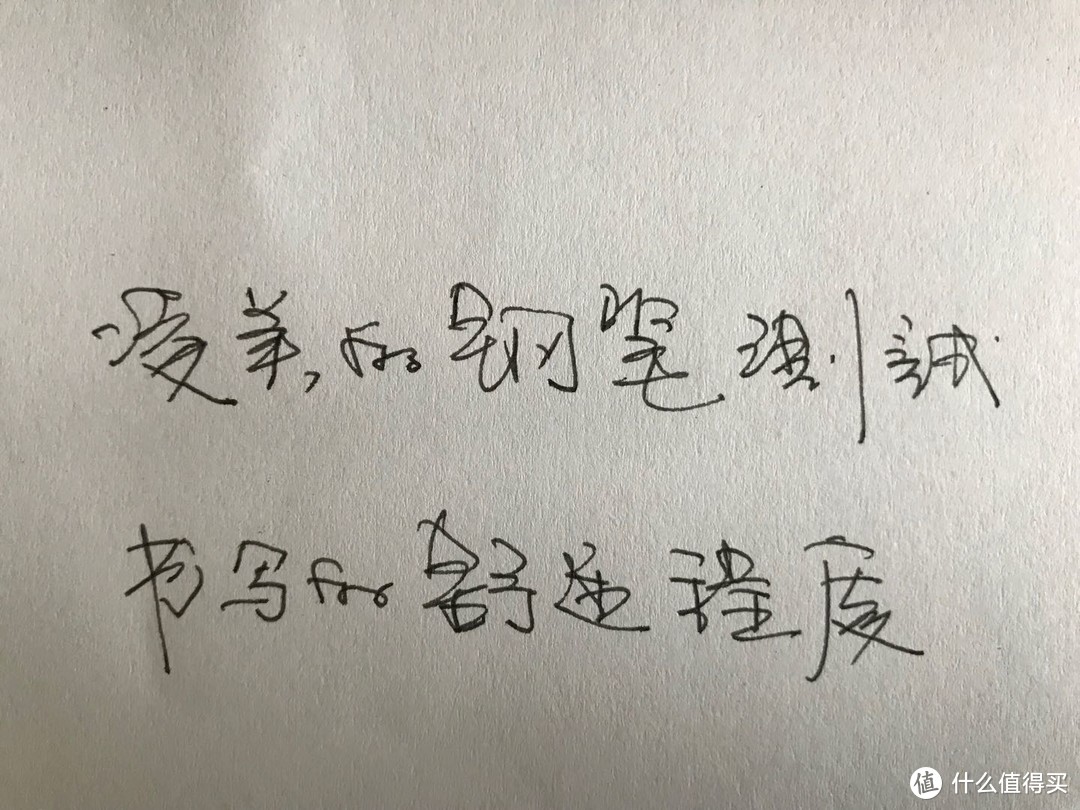 爱美,的钢笔测試
书写的舒适程度
值 什么值得买